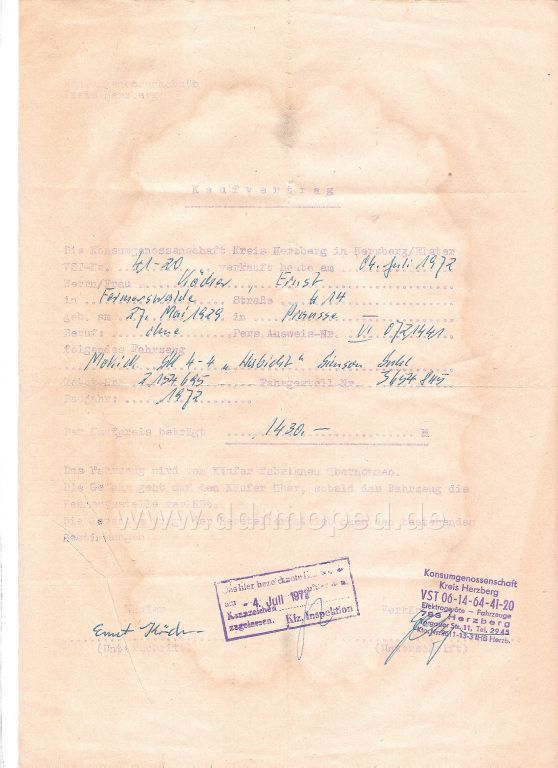 Konsumgenossenschaft
Kreis Herzberg
Kaufvertrag
Die Konsumgenossenschaft Kreis Herzberg in Herzberg/Elster
VST-Nr. 41-20 verkauft heute am 04. Juli 1972
Herrn/Frau Ernst
in Straße 14
geb. am 27. Mai 1929 in
Beruf: ohne Pers.Ausweis-Nr. VI 0721941
folgendes Fahrzeug
Mokick SR 4-4 "Habicht" Simson Suhl
Motor-Nr. 2154695 Fahrgestell Nr. 3654845
Baujahr: 1972
Der Kaufpreis beträgt 1430.- M
Das Fahrzeug wird vom Käufer fabrikneu übernommen.
Die Gefahr geht auf den Käufer über, sobald das Fahrzeug die
Verkaufsstelle verläßt.
Die nach den bestehenden
Bestimmungen.
www.ddrmoped.de
Das hier bezeichnete
am - 4. Juli 1972
Kennzeichen
zugelassen. Kfz. Inspektion
Konsumgenossenschaft
Kreis Herzberg
VST 06-14-64-41-20
Elektrogeräte - Fahrzeuge
793 Herzberg
Torgauer Str. 11, Tel. 2945
Käufer
Ernst
(Unterschrift)
(Unterschrift)